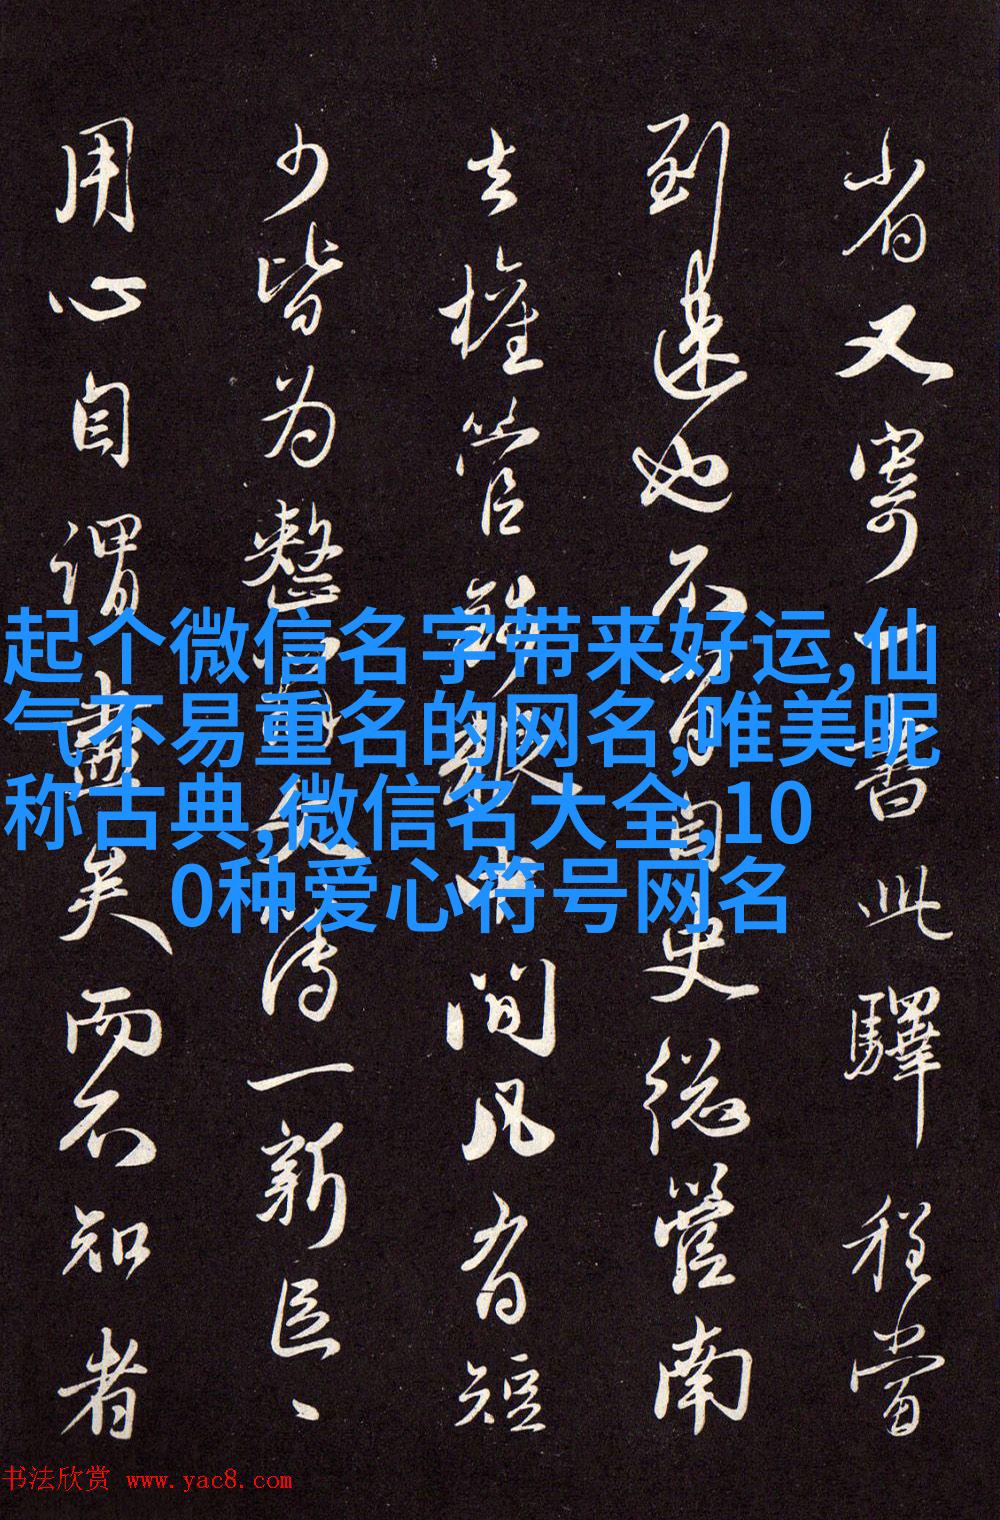 省又寄一書此驛程當
到速也不自史総營南
去権管中間凡有短
少皆为整一新
用心自謂盡矣而不知者
起个微信名字带来好运,仙
气不易重名的网名,唯美昵
称古典,微信名大全,10
0种爱心符号网名
书法欣赏 www.yac8.com